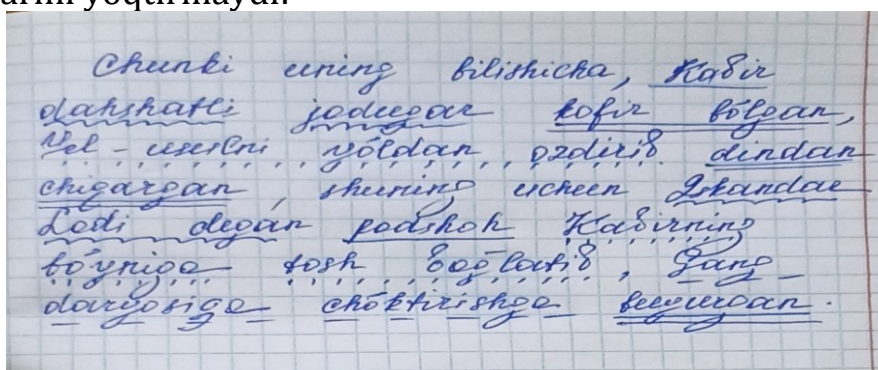 arni yoqtirmaydi.
Chunki uning bilishicha, Kabir
dahshatli jodugar kofir bõlgan,
Yel-usulni yõldan ozdirib dindan
chigargan, shuning uchun Iskandar
Lodi degan podshoh Kabirning
bõyniga tosh bog'latib, Gang
daryosiga chõktirishga buyurgan.